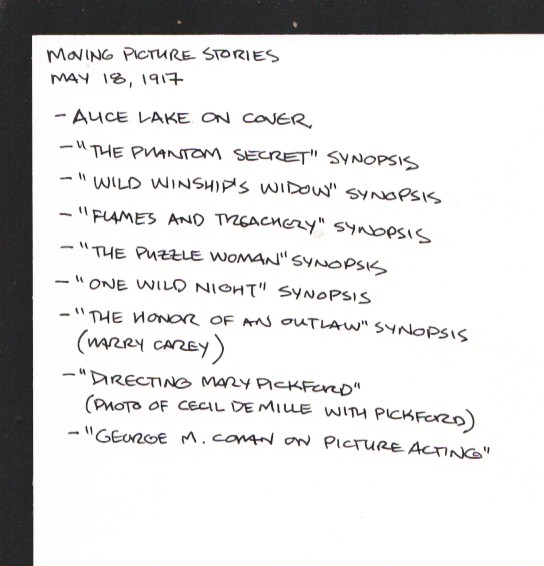 MOVING PICTURE STORIES
MAY 18, 1917
- ALICE LAKE ON COVER
- "THE PHANTOM SECRET" SYNOPSIS
- "WILD WINSHIP'S WIDOW" SYNOPSIS
- "FLAMES AND TREACHERY" SYNOPSIS
- "THE PUZZLE WOMAN" SYNOPSIS
- "ONE WILD NIGHT" SYNOPSIS
- "THE HONOR OF AN OUTLAW" SYNOPSIS
(HARRY CAREY)
- "DIRECTING MARY PICKFORD"
(PHOTO OF CECIL DE MILLE WITH PICKFORD)
- "GEORGE M. COHAN ON PICTURE ACTING"